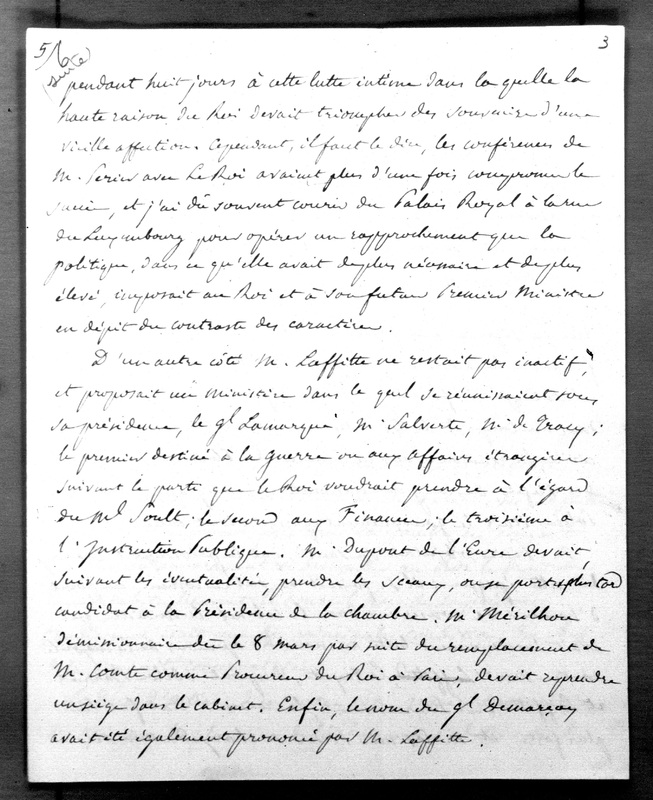 5/6 3
suite
pendant huit jours à cette lutte intime dans la quelle la
haute raison du Roi devait triompher des souvenirs d'une
vieille affection. Cependant, il faut le dire, les conférences de
M. Perier avec Le Roi avaient plus d'une fois compromis le
succès, et j'ai dû souvent courir du Palais Royal à la rue
du Luxembourg pour opérer un rapprochement que la
politique, dans ce qu'elle avait de plus nécessaire et de plus
élevé, imposait au Roi et à son futur Premier Ministre
en dépit du contraste des caractères.
D'un autre côté M. Laffitte ne restait pas inactif,
et proposait un ministère dans le quel se réunissaient sous
sa présidence, le gl Lamarque, Mr Salverte, Mr de Tracy;
le premier destiné à la guerre ou aux affaires étrangères
suivant le parti que le Roi voudrait prendre à l'égard
du Ml Soult; le second aux Finances; le troisième à
l'Instruction Publique. Mr Dupont de l'Eure devait,
suivant les éventualités, prendre les Sceaux, ou se porter plus tard
candidat à la Présidence de la chambre. Mr Mérilhou
démissionnaire dès le 8 mars par suite du remplacement de
M. Comte comme Procureur du Roi à Paris, devait reprendre
un siège dans le cabinet. Enfin, le nom du gl Demarçay
avait été également prononcé par M. Laffitte.